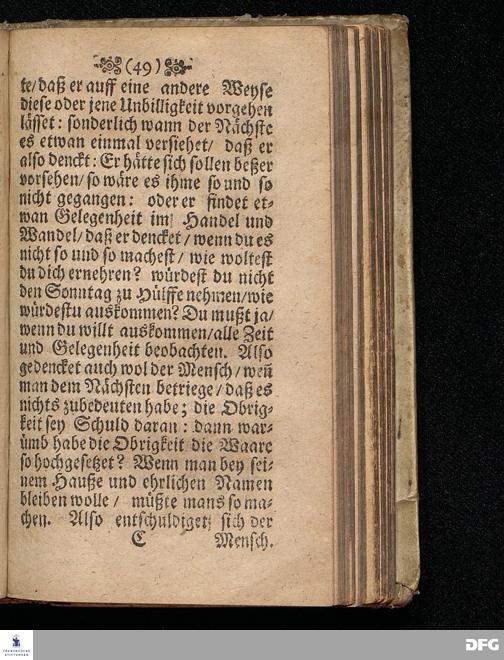 (49)
te/ daß er auff eine andere Weyse
diese oder jene Unbilligkeit vorgehen
lässet: sonderlich wann der Nächste
es etwan einmal versiehet/ daß er
also denckt: Er hätte sich sollen beßer
vorsehen/ so wäre es ihme so und so
nicht gegangen: oder er findet et-
wan Gelegenheit im Handel und
Wandel/ daß er dencket/ wenn du es
nicht so und so machest/ wie woltest
du dich ernehren? würdest du nicht
den Sonntag zu Hülffe nehmen/ wie
würdestu auskommen? Du mußt ja/
wenn du willt auskommen/ alle Zeit
und Gelegenheit beobachten. Also
gedencket auch wol der Mensch/ weñ
man dem Nächsten betriege/ daß es
nichts zubedeuten habe; die Obrig-
keit sey Schuld daran: dann war-
ümb habe die Obrigkeit die Waare
so hochgesetzet? Wenn man bey sei-
nem Hauße und ehrlichen Namen
bleiben wolle/ müßte mans so ma-
chen. Also entschuldiget sich der
C Mensch.
FRANCKESCHE
STIFTUNGEN
DFG